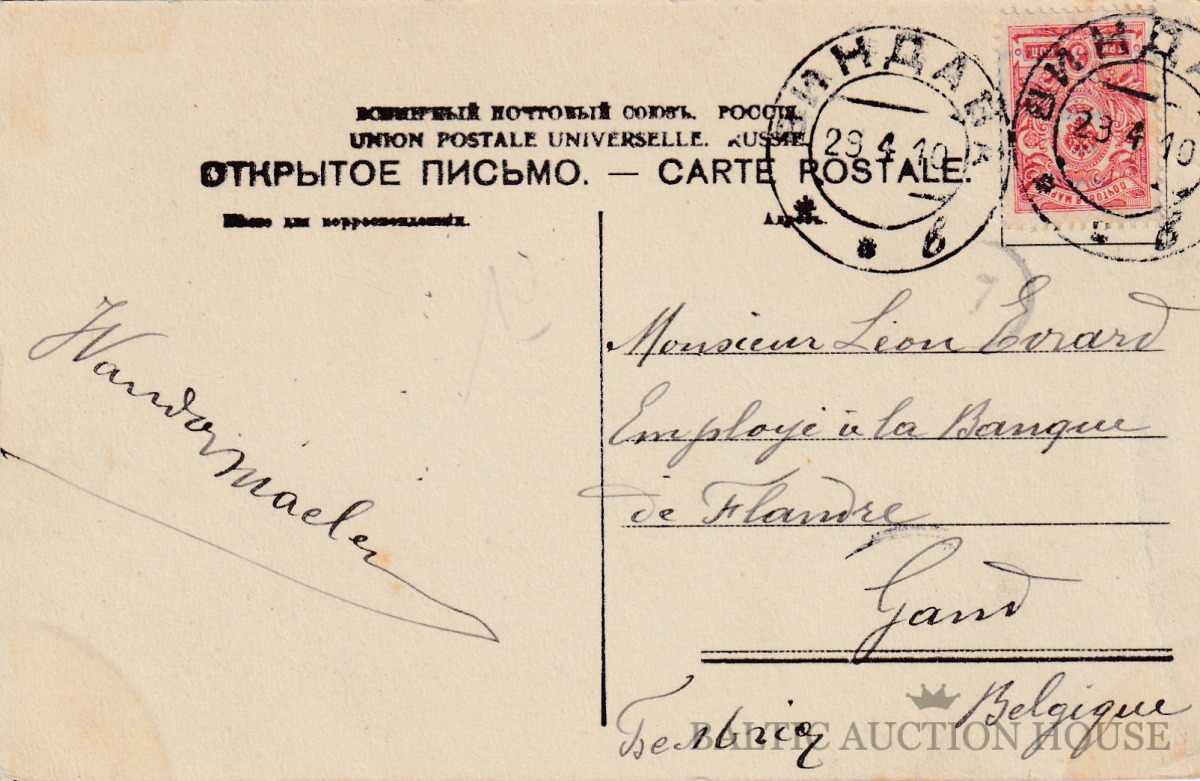 ВСЕМИРНЫЙ ПОЧТОВЫЙ СОЮЗЪ. РОССІЯ.
UNION POSTALE UNIVERSELLE. RUSSIE.
ОТКРЫТОЕ ПИСЬМО. — CARTE POSTALE.
Мѣсто для корреспонденціи.
Адресъ.
ВИНДАВА
29 4 10
* * б
ВИНДА
29 4 10
* * б
ТРИ КОП
3
ПОЧТОВАЯ МАР
Vandermaelen
Monsieur Léon Evrard
Employé à la Banque
de Flandre
Gand
Belgique
Бельгія
BALTIC AUCTION HOUSE